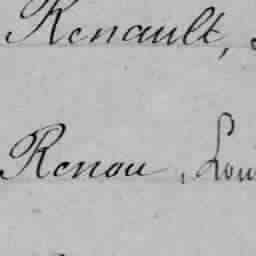 Renault,
Renou, Lou